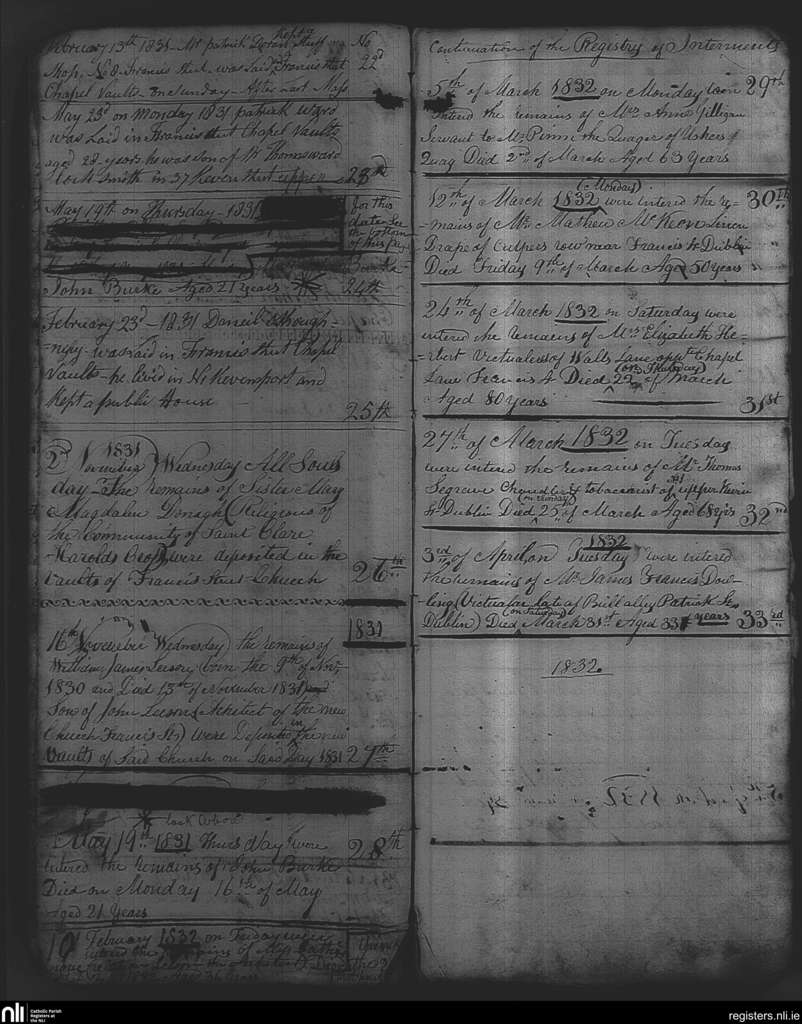 February 13th 1831 - Mr patrick Doran
Mass, No 8 Francis street - was laid Francis street
Chapel Vaults - on Sunday - After Last Mass
No
22d
May 23d on Monday 1831 patrick ward
was Laid in Francis street Chapel Vaults
aged 28 years he was son of Mr Thomas ward
lock Smith in 37 Kevin street upper
23rd
May 19th on Thursday - 1831
for this
date See
the bottom
of this page
Burke
John Burke Aged 21 years
24th
February 23d - 1831 Daniel
was Laid in Francis street Chapel
Vaults - he lived in N. Kevensport and
Kept a public House
25th
1831
2d November Wednesday All Souls
day - The remains of Sister Mary
Magdalin Donagh (Religious of
the Community of Saint Clare
Harolds Cross) were deposited in the
Vaults of Francis Street Church
26th
1831
16th November Wednesday the remains of
William James Leeson born the 9th of Novr
1830 and Died 15th of November 1831
Son of John Leeson (Architect of the new
Church Francis St) were Deposited in the new
Vaults of Said Church on Said Day 1831
27th
look above
May 19th 1831 Thursday were
intered the remains of John Burke
Died on Monday 16th of May
Aged 21 Years
28th
10 February 1832 on Friday were
intered the remains of Miss
Aged 36 Years
Continuation of the Registry of Interments
5th of March 1832 on Monday were
intered the remains of Mrs Anne Gilligan
Servant to Mr Pimm the Quager of Ushers
Quag Died 2nd of March Aged 63 Years
29th
(Monday)
12th of March 1832 were intered the re-
mains of Mr Mathew McKeon Linen
Drape of Culpers row near Francis St Dublin
Died Friday 9th of March Aged 50 Years
30th
24th of March 1832 on Saturday were
intered the remains of Mrs Elizabeth He-
bert Victualer of Walls Lane oppt Chapel
Lane Francis St Died (on Thursday) 22 of March
Aged 80 Years
31st
27th of March 1832 on Tuesday
were intered the remains of Mr Thomas
Segrave Chandler & tobacconist of upper Kevin
St Dublin Died (on Sunday) 25 of March Aged 68 yrs
32nd
1832
3rd of April, on Tuesday were intered
the remains of Mr James Francis Dow-
ling (Victualar late of Bull alley Patrick St
Dublin) Died (on Saturday) March 31st Aged 33 years
33rd
1832.
nli
Catholic Parish
Registers at
the NLI
registers.nli.ie